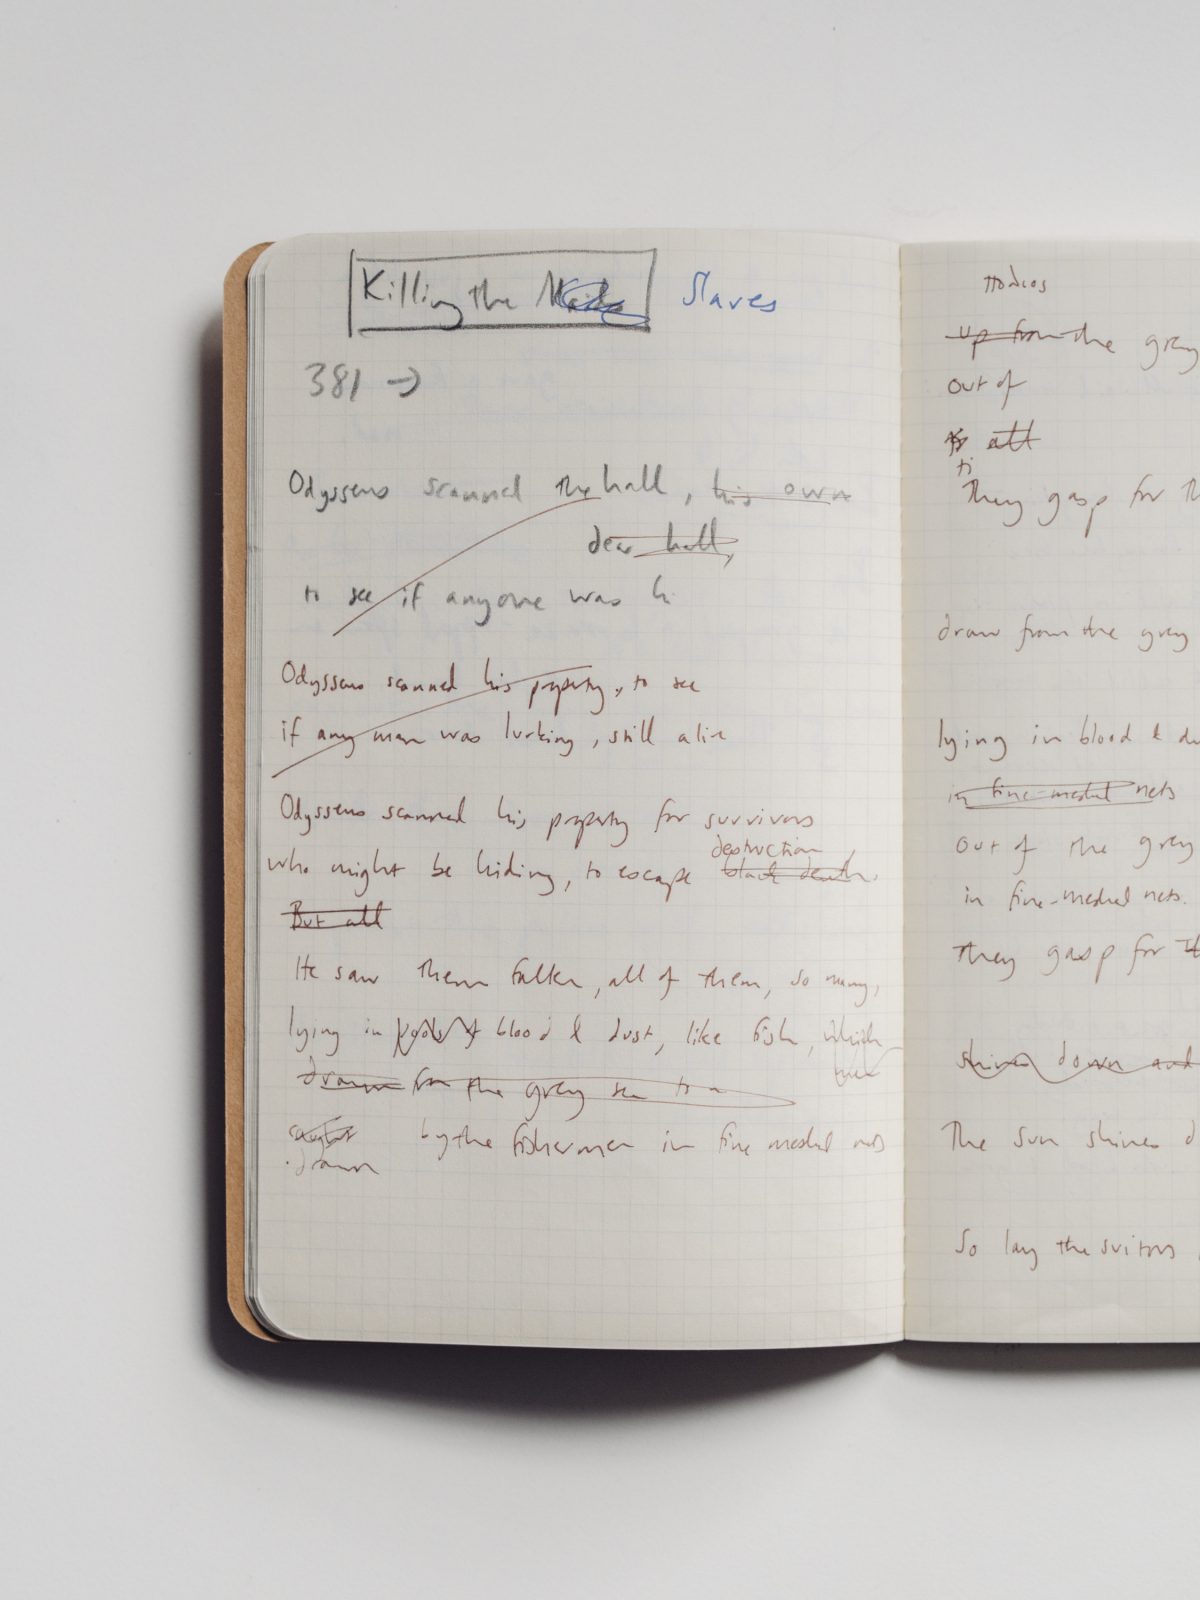 Killing the Maids Slaves
381 →
Odysseus scanned the hall, his own
dear hall,
to see if anyone was h
Odysseus scanned his property, to see
if any man was lurking, still alive
Odysseus scanned his property for survivors
destruction
who might be hiding, to escape black death.
But all
He saw them fallen, all of them, so many,
lying in pools of blood & dust, like fish, which
drawn from the grey sea to a
caught by the fishermen in fine meshed nets
drawn
up from the grey
out of
all
They gasp for th
draw from the grey
lying in blood & du
in fine-meshed nets
out of the grey
in fine-meshed nets.
They gasp for th
shines down and
The sun shines d
So lay the suitors